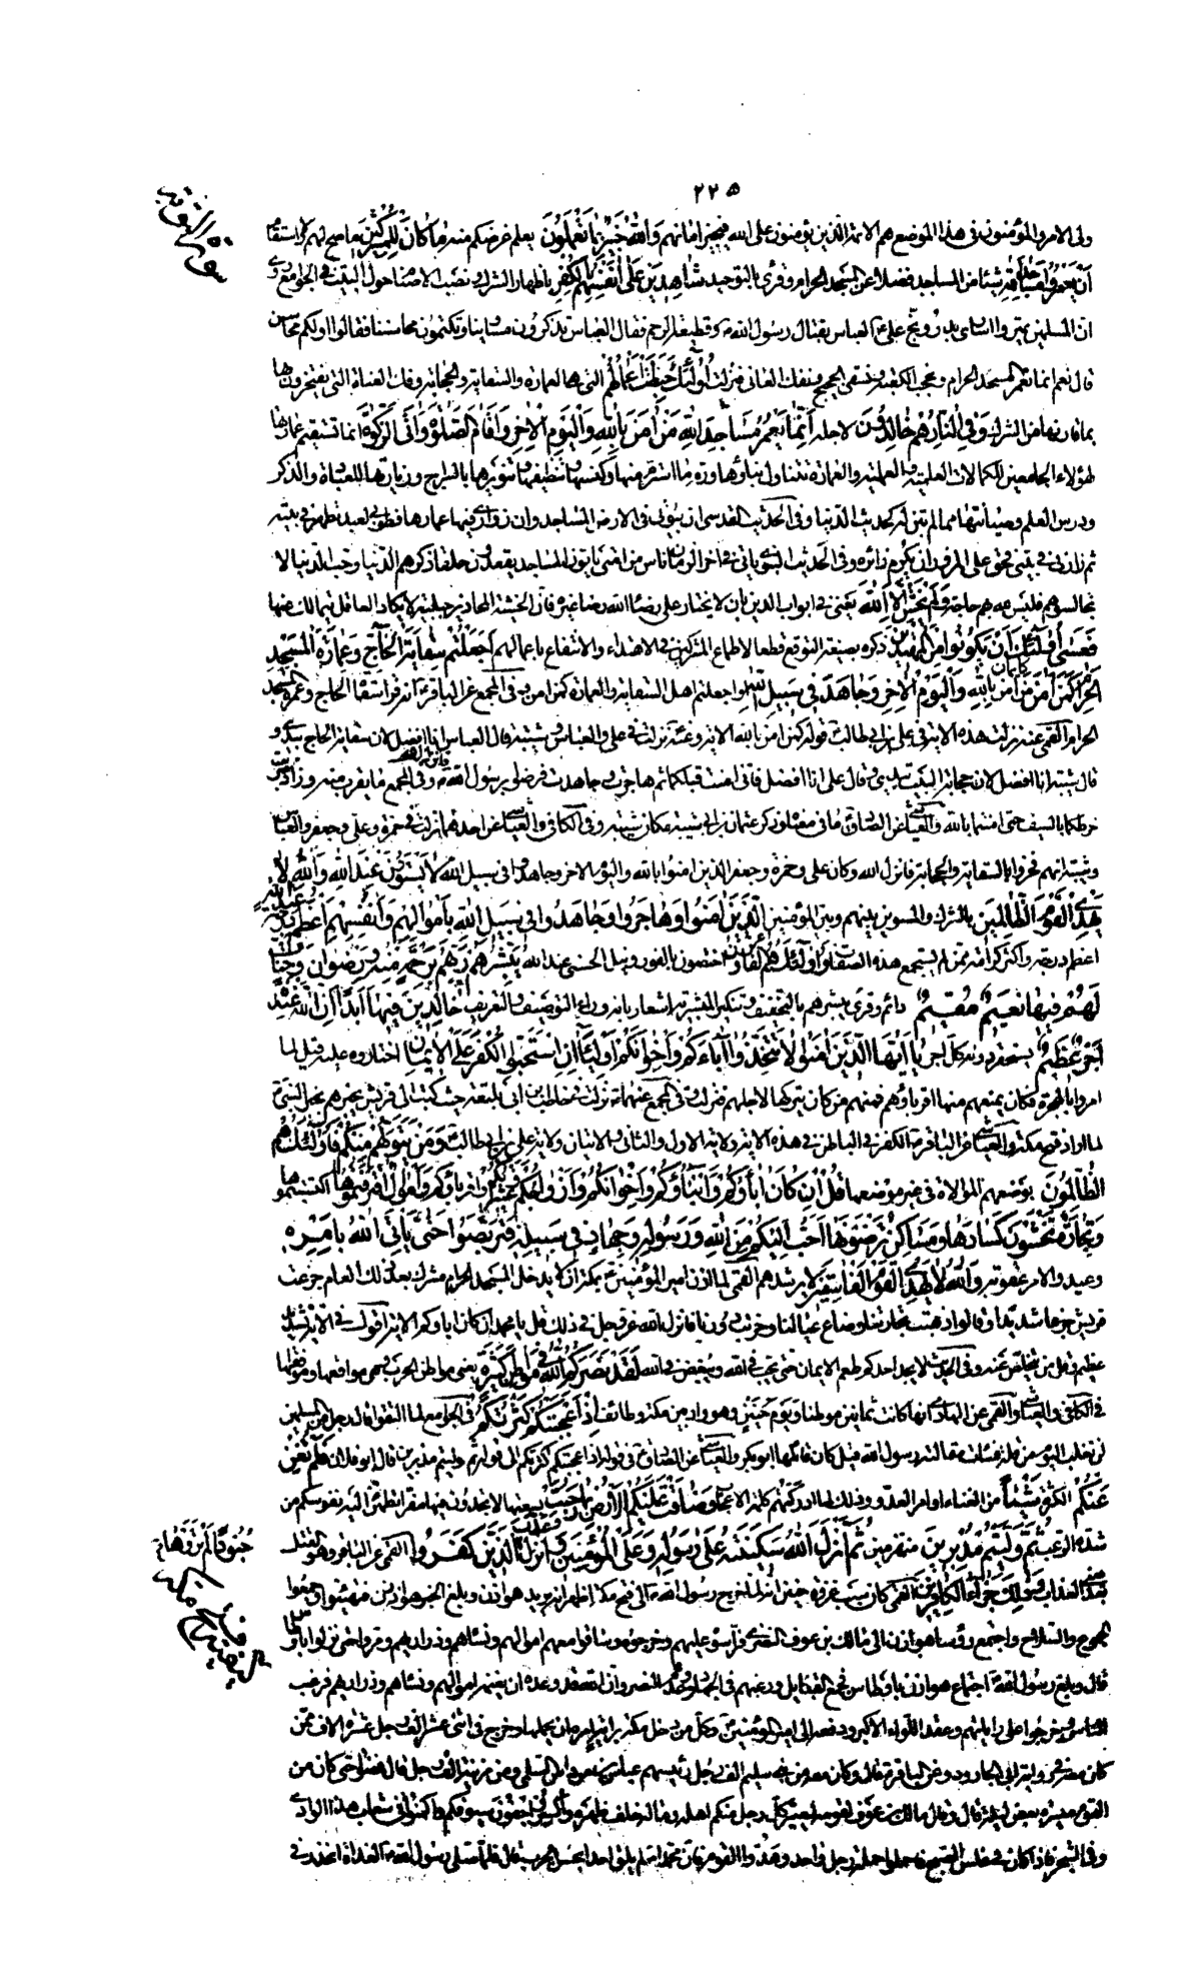 ٢٢٥
سورة التوبة
ولى الامر والمؤمنون في هذا الموضع هم الائمة الذين يؤمنون على الله فيجيز امانهم وَاللهُ خَبِيرٌ بِمَا تَعْمَلُونَ يعلم غرضكم منه مَا كَانَ لِلْمُشْرِكِينَ ما صح لهم
أَنْ يَعْمُرُوا مَسَاجِدَ اللهِ شيئا من المساجد فضلا عن المسجد الحرام وقرئ بالتوحيد شَاهِدِينَ عَلَى أَنْفُسِهِمْ بِالْكُفْرِ باظهار الشرك ونصب الاصنام حول البيت في الجوامع روى
ان المسلمين عيروا اسارى بدر ووبخ علي العباس بقتال رسول الله وقطيعة الرحم فقال العباس تذكرون مساوينا وتكتمون محاسننا فقالوا اولكم محاسن
قال نعم انا نعمر المسجد الحرام ونحجب الكعبة ونسقي الحجيج ونفك العاني فنزلت أُولَئِكَ حَبِطَتْ أَعْمَالُهُمْ التي هي العمارة والسقاية والحجابة وفك العناة التي يفتخرون بها
بما قارنها من الشرك وَفِي النَّارِ هُمْ خَالِدُونَ لاجله إِنَّمَا يَعْمُرُ مَسَاجِدَ اللهِ مَنْ آمَنَ بِاللهِ وَالْيَوْمِ الْآخِرِ وَأَقَامَ الصَّلَوةَ وَآتَى الزَّكَوةَ انما تستقيم عمارتها
لهؤلاء الجامعين للكمالات العلمية والعملية والعمارة تتناول بناؤها ورم ما استرم منها وكنسها وتنظيفها وتنويرها بالسراج وزيارتها للعبادة والذكر
ودرس العلم وصيانتها مما لم تبن له كحديث الدنيا وفي الحديث القدسي ان بيوتي في الارض المساجد وان زواري فيها عمارها فطوبى لعبد تطهر في بيته
ثم زارني في بيتي فحق على المزور ان يكرم زائره وفي الحديث النبوي ياتي في اخر الزمان ناس من امتي ياتون المساجد يقعدون حلقا ذكرهم الدنيا وحب الدنيا لا
تجالسوهم فليس لله بهم حاجة وَلَمْ يَخْشَ إِلَّا اللهَ يعني في ابواب الدين بان لا يختار على رضا الله رضا غيره فان الخشية عن المحاذير جبلية لا يكاد العاقل يتمالك عنها
فَعَسَى أُولَئِكَ أَنْ يَكُونُوا مِنَ الْمُهْتَدِينَ ذكره بصيغة التوقع قطعا لاطماع المشركين في الاهتداء والانتفاع باعمالهم أَجَعَلْتُمْ سِقَايَةَ الْحَاجِّ وَعِمَارَةَ الْمَسْجِدِ
الْحَرَامِ كَمَنْ آمَنَ بِاللهِ وَالْيَوْمِ الْآخِرِ وَجَاهَدَ فِي سَبِيلِ اللهِ اجعلتم اهل السقاية والعمارة كمن امن وفي المجمع عن الباقر انه قرأ سقاة الحاج وعمرة المسجد
الحرام القمي عنه نزلت هذه الاية في علي بن ابي طالب قوله كمن امن بالله الاية وعنه نزلت في علي والعباس وشيبة قال العباس انا افضل لان سقاية الحاج بيدي و
قال شيبة انا افضل لان حجابة البيت بيدي وقال علي انا افضل فاني امنت قبلكما ثم هاجرت وجاهدت فرضوا برسول الله وفي المجمع ما يقرب منه وزاد
خرطكما بالسيف حتى امنتما بالله والعياشي عن الصادق ما في معناه وذكر عثمان بن ابي شيبة مكان شيبة وفي الكافي والعياشي عن احدهما نزلت في حمزة وعلي وجعفر والعباس
وشيبة انهم فخروا بالسقاية والحجابة فانزل الله وكان علي وحمزة وجعفر الذين امنوا بالله واليوم الاخر وجاهدوا في سبيل الله لَا يَسْتَوُونَ عِنْدَ اللهِ وَاللهُ لَا
يَهْدِي الْقَوْمَ الظَّالِمِينَ بالشرك والتسوية بينهم وبين المؤمنين الَّذِينَ آمَنُوا وَهَاجَرُوا وَجَاهَدُوا فِي سَبِيلِ اللهِ بِأَمْوَالِهِمْ وَأَنْفُسِهِمْ أَعْظَمُ دَرَجَةً عِنْدَ اللهِ
اعظم درجة واكثر كرامة ممن لم يستجمع هذه الصفات وَأُولَئِكَ هُمُ الْفَائِزُونَ المختصون بالفوز ونيل الحسنى عند الله يُبَشِّرُهُمْ رَبُّهُمْ بِرَحْمَةٍ مِنْهُ وَرِضْوَانٍ وَجَنَّاتٍ
لَهُمْ فِيهَا نَعِيمٌ مُقِيمٌ دائم وقرئ يبشرهم بالتخفيف وتنكير المبشر به اشعار بانه وراء التوصيف والتعريف خَالِدِينَ فِيهَا أَبَدًا إِنَّ اللهَ عِنْدَهُ
أَجْرٌ عَظِيمٌ يستحقر دونه كل اجر يَا أَيُّهَا الَّذِينَ آمَنُوا لَا تَتَّخِذُوا آبَاءَكُمْ وَإِخْوَانَكُمْ أَوْلِيَاءَ إِنِ اسْتَحَبُّوا الْكُفْرَ عَلَى الْإِيمَانِ اختاروه عليه قيل لما
امروا بالهجرة فكان يمنعهم منها اقرباؤهم فمنهم من كان يتركها لاجلهم فنزلت وفي المجمع عنهما نزلت في حاطب بن ابي بلتعة حيث كتب الى قريش يخبرهم بخبر النبي
لما اراد فتح مكة والعياشي عن الباقر الكفر في الباطن في هذه الاية ولاية الاول والثاني والايمان ولاية علي بن ابي طالب وَمَنْ يَتَوَلَّهُمْ مِنْكُمْ فَأُولَئِكَ هُمُ
الظَّالِمُونَ بوضعهم الموالاة في غير موضعها قُلْ إِنْ كَانَ آبَاؤُكُمْ وَأَبْنَاؤُكُمْ وَإِخْوَانُكُمْ وَأَزْوَاجُكُمْ وَعَشِيرَتُكُمْ اقرباؤكم وَأَمْوَالٌ اقْتَرَفْتُمُوهَا اكتسبتموها
وَتِجَارَةٌ تَخْشَوْنَ كَسَادَهَا وَمَسَاكِنُ تَرْضَوْنَهَا أَحَبَّ إِلَيْكُمْ مِنَ اللهِ وَرَسُولِهِ وَجِهَادٍ فِي سَبِيلِهِ فَتَرَبَّصُوا حَتَّى يَأْتِيَ اللهُ بِأَمْرِهِ
وعيد والامر عقوبة وَاللهُ لَا يَهْدِي الْقَوْمَ الْفَاسِقِينَ لا يرشدهم القمي لما اذن امير المؤمنين بمكة ان لا يدخل المسجد الحرام مشرك بعد ذلك العام جزعت
قريش جزعا شديدا وقالوا ذهبت تجارتنا وضاع عيالنا وخربت دورنا فانزل الله عز وجل في ذلك قل يا محمد ان كان اباؤكم الاية اقول في الاية تشديد
عظيم وقل من يتخلص عنه وفي الحديث لا يجد احدكم طعم الايمان حتى يحب في الله ويبغض في الله لَقَدْ نَصَرَكُمُ اللهُ فِي مَوَاطِنَ كَثِيرَةٍ يعني مواطن الحرب وهي مواقعها ومواقفها
في الكافي والعياشي والقمي عن الهادي انها كانت ثمانين موطنا وَيَوْمَ حُنَيْنٍ وهو واد بين مكة وطائف إِذْ أَعْجَبَتْكُمْ كَثْرَتُكُمْ في الجوامع لما التقوا قال رجل من المسلمين
لن نغلب اليوم من قلة فساءت مقالته رسول الله قيل كان قائلها ابو بكر والعياشي عن الصادق في قوله اذ اعجبتكم كثرتكم الى قوله ثم وليتم مدبرين قال ابو فلان فَلَمْ تُغْنِ
عَنْكُمْ الكثرة شَيْئًا من الغناء او امر العدو وذلك لما ادركتهم كلمة الاعجاب وَضَاقَتْ عَلَيْكُمُ الْأَرْضُ بِمَا رَحُبَتْ بسعتها لا تجدون فيها مقرا تطمئن اليه نفوسكم من
شدة الرعب ثُمَّ وَلَّيْتُمْ مُدْبِرِينَ منهزمين ثُمَّ أَنْزَلَ اللهُ سَكِينَتَهُ عَلَى رَسُولِهِ وَعَلَى الْمُؤْمِنِينَ وَأَنْزَلَ وَعَذَّبَ الَّذِينَ كَفَرُوا القمي عن الباقر وهو القتل
جُنُودًا لَمْ تَرَوْهَا
وَذَلِكَ جَزَاءُ الْكَافِرِينَ القمي كان سبب غزوة حنين انه لما خرج رسول الله الى فتح مكة اظهر انه يريد هوازن وبلغ الخبر هوازن فتهيئوا وجمعوا
الجموع والسلاح واجتمع رؤساء هوازن الى مالك بن عوف النضري فرأسوه عليهم وخرجوا وساقوا معهم اموالهم ونساءهم وذراريهم ومروا حتى نزلوا باوطاس
قال وبلغ رسول الله اجتماع هوازن باوطاس فجمع القبائل ورغبهم في الجهاد ووعدهم النصر وان الله قد وعده ان يغنمه اموالهم ونساءهم وذراريهم فرغب
الناس وخرجوا على راياتهم وعقد اللواء الاكبر ودفعه الى امير المؤمنين وكل من دخل مكة براية امره ان يحملها وخرج في اثنى عشر الف رجل عشرة الاف ممن
كان معه وفي رواية ابي الجارود وعن الباقر قال وكان معه من بني سليم الف رجل رئيسهم عباس بن مرداس السلمي ومن مزينة الف رجل قال فمضوا حتى كان من
القوم مسيرة بعض ليلة قال وقال مالك بن عوف لقومه ليصير كل رجل منكم اهله وماله خلف ظهره واكسروا جفون سيوفكم واكمنوا في شعاب هذا الوادي
وفي الشجر فاذا كان في غلس الصبح فاحملوا حملة رجل واحد وهدوا القوم فان محمدا لم يلق احدا يحسن الحرب قال فلما صلى رسول الله الغداة انحدر في